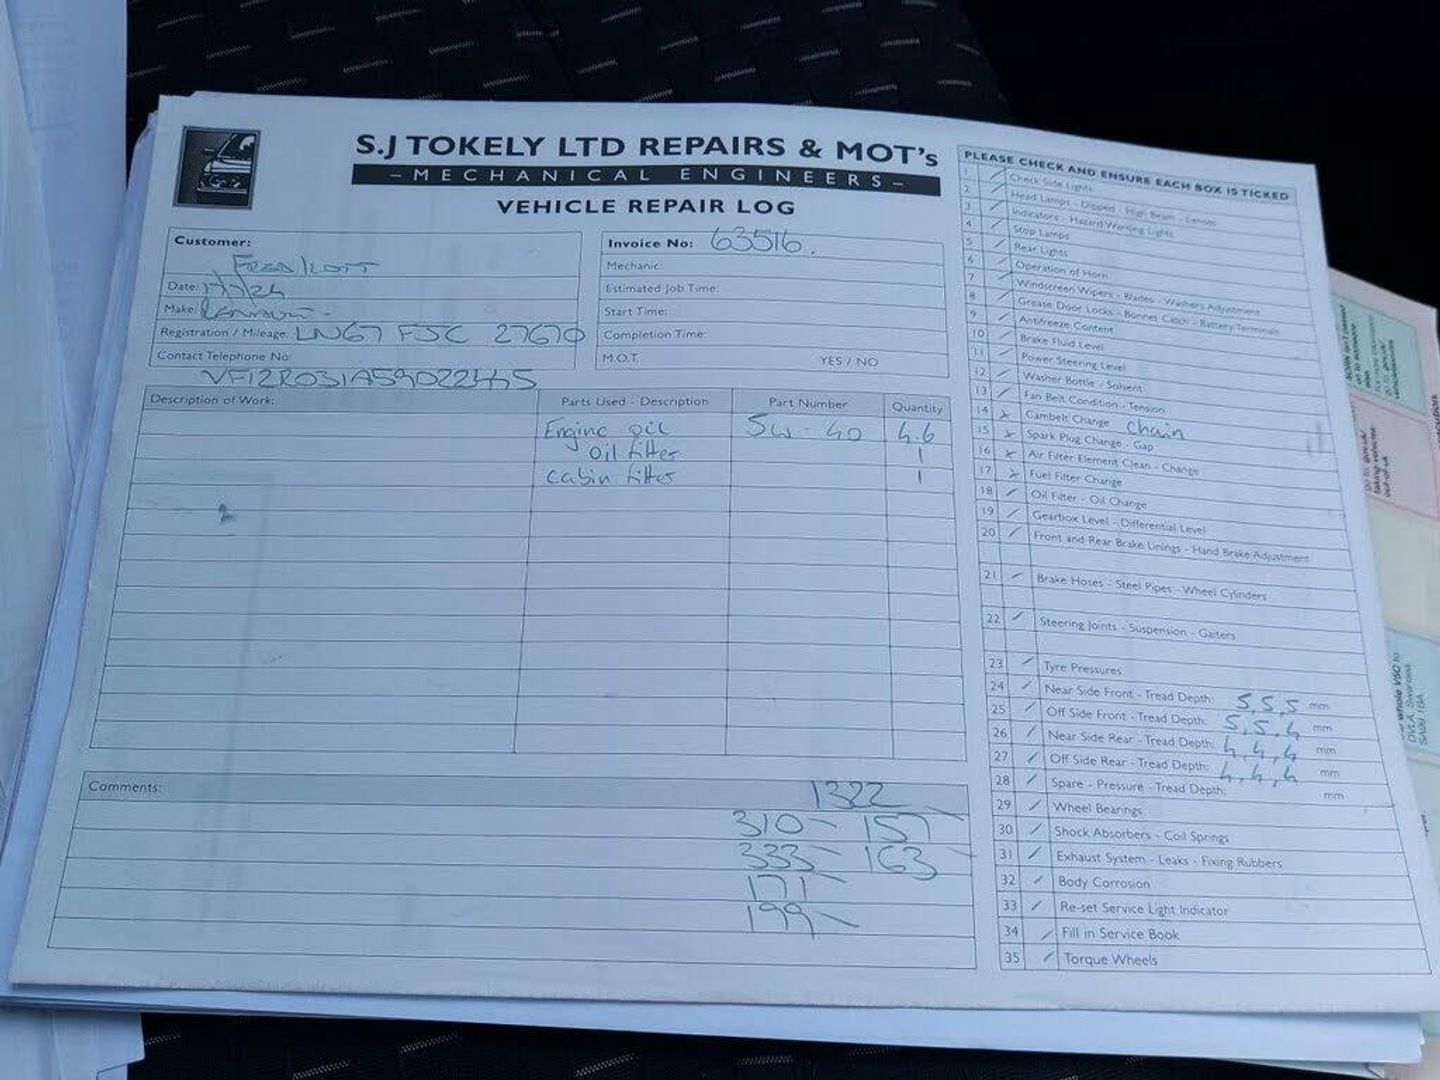 S.J TOKELY LTD REPAIRS & MOT's
– MECHANICAL ENGINEERS –
VEHICLE REPAIR LOG
Customer:
Date: 1/7/24
Make: Renault
Registration / Mileage: LN67 FJC 27670
Contact Telephone No:
VF12R031A59022445
Invoice No: 63516.
Mechanic:
Estimated Job Time:
Start Time:
Completion Time:
M.O.T. YES / NO
Description of Work: Parts Used - Description Part Number Quantity
Engine oil 5w-40 4.6
oil filter 1
cabin filter 1
Comments:
1322
310 - 157
333 - 163
171 -
199 -
PLEASE CHECK AND ENSURE EACH BOX IS TICKED
1 / Check Side Lights
2 / Head Lamps - Dipped - High Beam - Lenses
3 / Indicators - Hazard Warning Lights
4 / Stop Lamps
5 / Rear Lights
6 / Operation of Horn
7 / Windscreen Wipers - Blades - Washers Adjustment
8 / Grease Door Locks - Bonnet Catch - Battery Terminals
9 / Antifreeze Content
10 / Brake Fluid Level
11 / Power Steering Level
12 / Washer Bottle - Solvent
13 / Fan Belt Condition - Tension
14 x Cambelt Change chain
15 x Spark Plug Change - Gap
16 x Air Filter Element Clean - Change
17 x Fuel Filter Change
18 / Oil Filter - Oil Change
19 / Gearbox Level - Differential Level
20 / Front and Rear Brake Linings - Hand Brake Adjustment
21 / Brake Hoses - Steel Pipes - Wheel Cylinders
22 / Steering Joints - Suspension - Gaiters
23 / Tyre Pressures
24 / Near Side Front - Tread Depth: 5,5,5 mm
25 / Off Side Front - Tread Depth: 5,5,4 mm
26 / Near Side Rear - Tread Depth: 4,4,4 mm
27 / Off Side Rear - Tread Depth: 4,4,4 mm
28 / Spare - Pressure - Tread Depth: mm
29 / Wheel Bearings
30 / Shock Absorbers - Coil Springs
31 / Exhaust System - Leaks - Fixing Rubbers
32 / Body Corrosion
33 / Re-set Service Light Indicator
34 / Fill in Service Book
35 / Torque Wheels
whole V5C to
DVLA, Swansea,
SA99 1BA